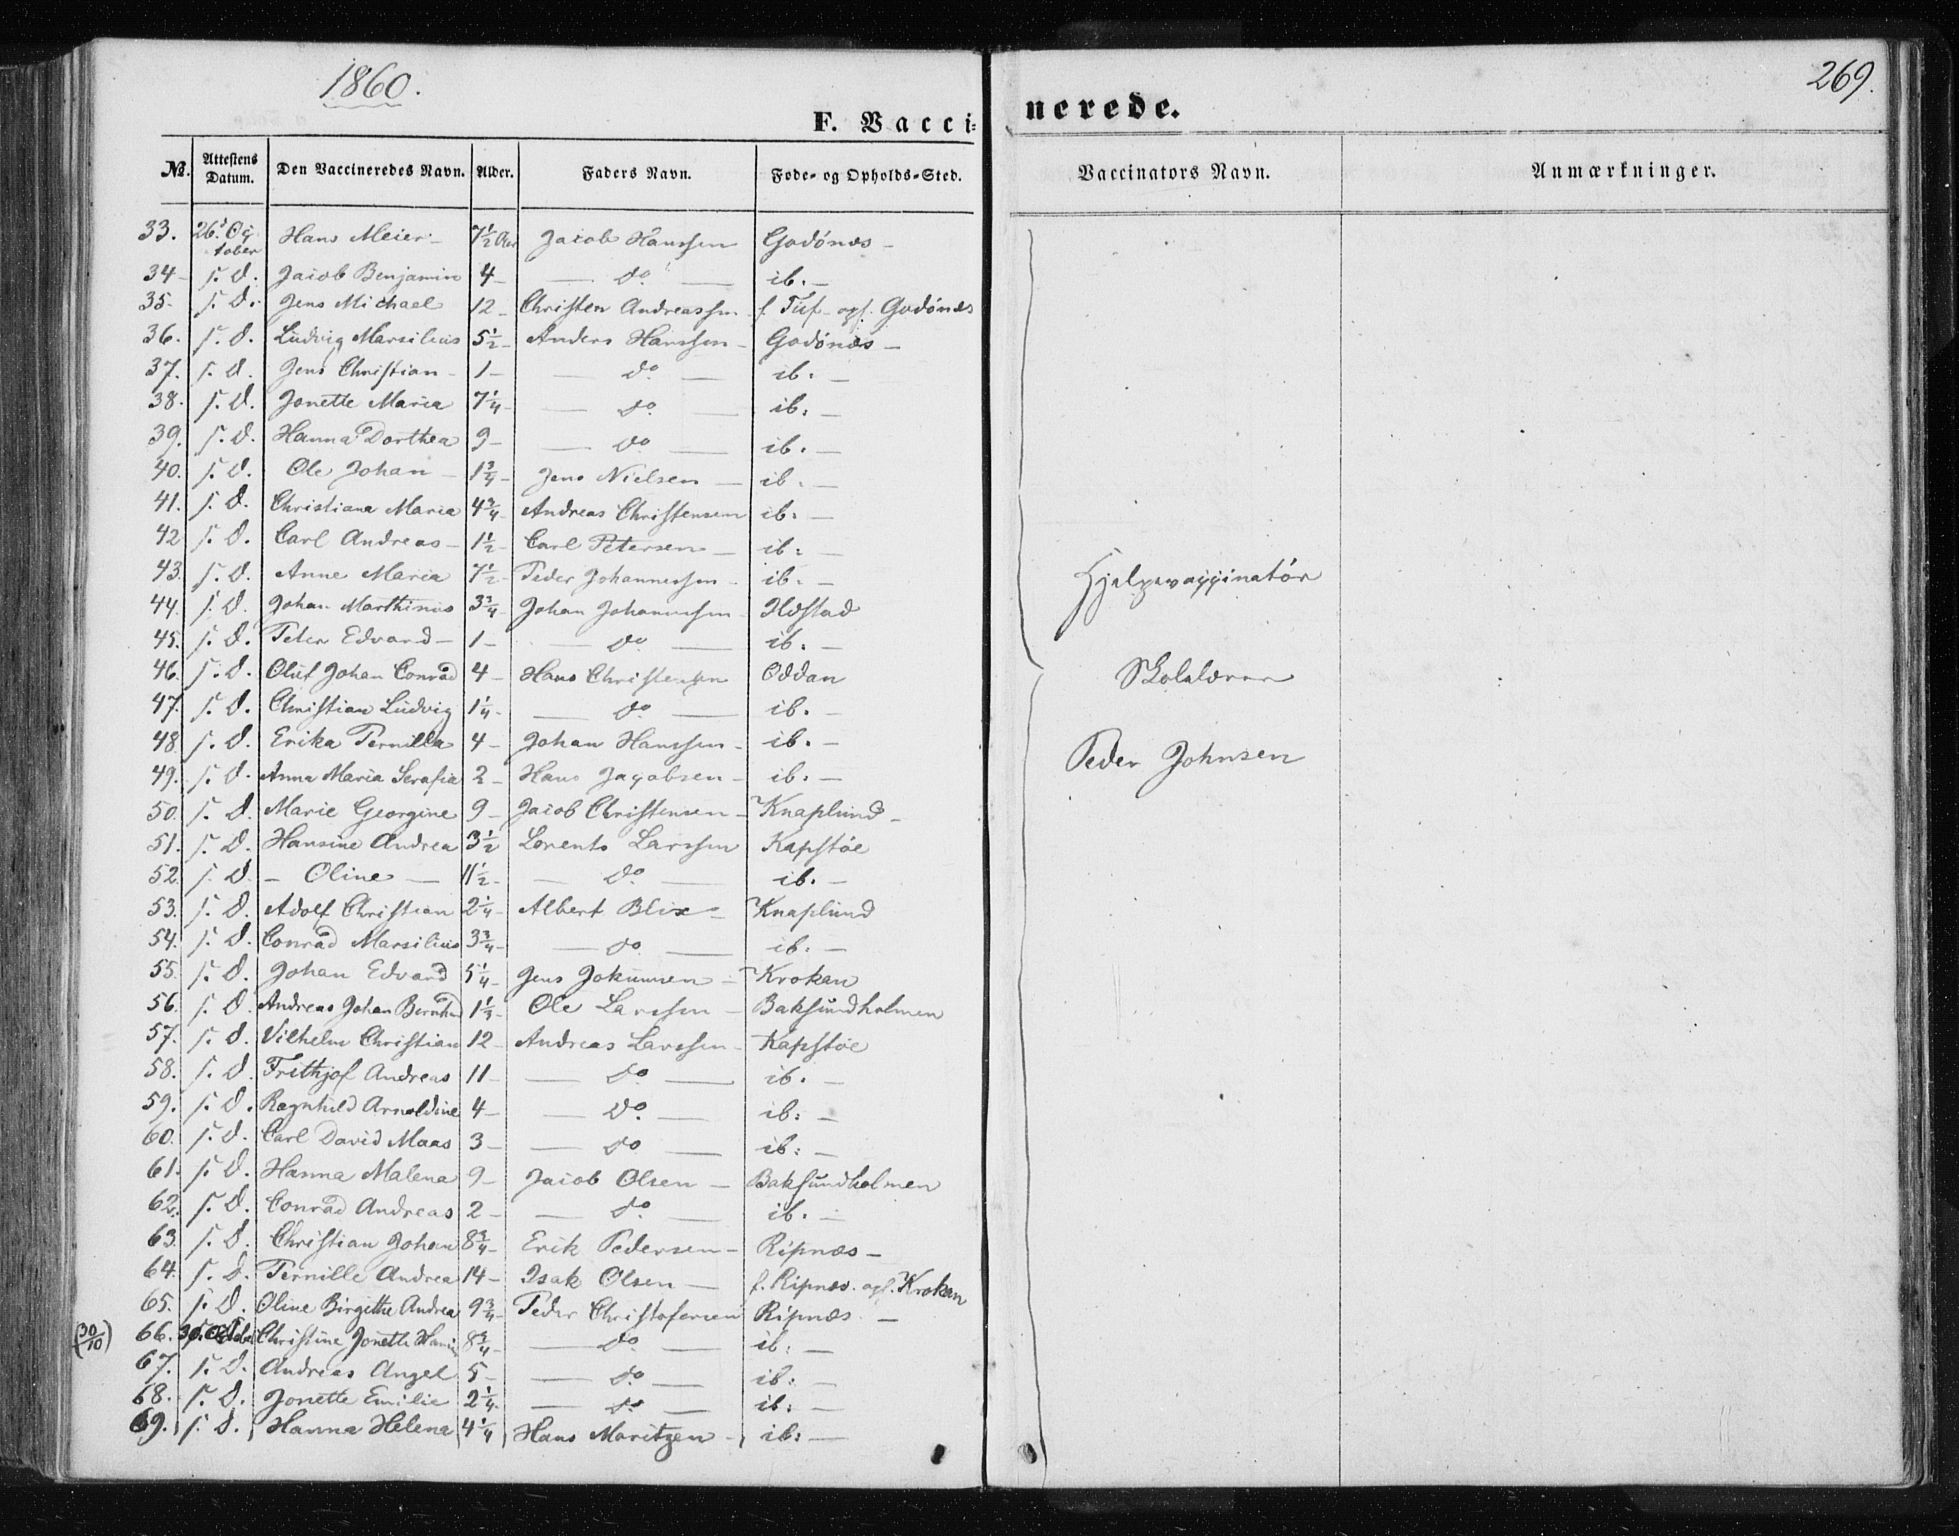 1860.
269.
F. Vaccinerede.
№. Attestens Datum. Den Vaccineredes Navn. Alder. Faders Navn. Føde- og Opholds-Sted. Vaccinators Navn. Anmærkninger.
33. 26. Oc-tober Hans Meier 7 1/2 Aar Jacob Hanssen Godønæs -
34 - s. D. Jacob Benjamin 4 - — do — ib. -
35. s. D. Jens Michael 12 - Christen Andreassen f. Tuf - opf. Godønæs
36. s. D. Ludvig Marsilius 5 1/2 - Anders Hanssen - Godønæs -
37. s. D. Jens Christian - 1 - — do. — ib. -
38. s. D. Jonette Maria 7 1/4 - — do. — ib. -
39. s. D. Hanna Dorthea 9 - — do — ib. -
40. s. D. Ole Johan - 1 3/4 - Jens Nielsen - ib. -
41. s. D. Christiana Maria 4 3/4 - Andreas Christensen ib. -
42 s. D. Carl Andreas - 1 1/2 - Carl Petersen - ib. -
43. s. D. Anne Maria 7 1/2 - Peder Johannessen - ib. -
44. s. D. Johan Marthinus 3 3/4 - Johan Johannessen - Hæstad
45. s. D. Peter Edvard - 1 - — do. — ib. -
46. s. D. Oluf Johan Conrad 4 - Hans Christensen Oddan
47. s. D. Christian Ludvig 1 1/4 - — do. — ib. -
48 s. D. Erika Pernilla 4 - Johan Hanssen - ib. -
49. s. D. Anna Maria Serafia 2 - Hans Jacobsen - ib. -
50. s. D. Marie Georgine 9 - Jacob Christensen - Knaplund -
51. s. D. Hansine Andrea 3 1/2 Lorents Larssen Kapstøe
52. s. D. - Oline - 11 1/2 - — do — ib. -
53. s. D. Adolf Christian 2 1/4 - Albert Blix - Knaplund
54. s. D. Conrad Marsilius 3 3/4 - — do — ib. -
55. s. D. Johan Edvard 5 1/4 - Jens Jokumsen - Krokan
56. s. D. Andreas Johan Bernhard 1 1/2 - Ole Larssen - Baksundholmen
57. s. D. Vilhelm Christian 12 - Andreas Larssen - Kapstøe
58. s. D. Frithjof Andreas 11 - — do — ib. -
59. s. D. Ragnhild Arnoldine 4 - — do. — ib. -
60. s. D. Carl David Maas 3 - — do — ib. -
61. s. D. Hanna Malena 9 - Jacob Olsen - Baksundholmen
62. s. D. Conrad Andreas 2 - — do. — ib. -
63. s. D. Christian Johan 8 3/4 - Erik Pedersen - Ripnæs -
64. s. D. Pernille Andrea 14 - Isak Olsen - f. Ripnæs. opf. Krokan
65. s. D. Oline Birgitte Andrea 9 3/4 - Peder Christofersen Ripnæs -
(30/10) 66. Christine Jonette 8 3/4 - — do. — ib. -
67. s. D. Andreas Angel 5 - — do. — ib. -
68. s. D. Jonette Emilie 2 1/4 - — do — ib. -
69. s. D. Hanna Helena 4 1/4 Hans Moritzen - ib. -
Hjelpevaccinatør
Skolelærer
Peder Johnsen